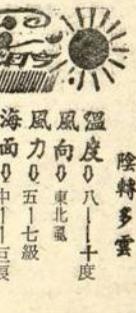 陰轉多雲
溫度⇩八——十度
風向⇩東北風
風力⇩五——七級
海面⇩中——巨浪